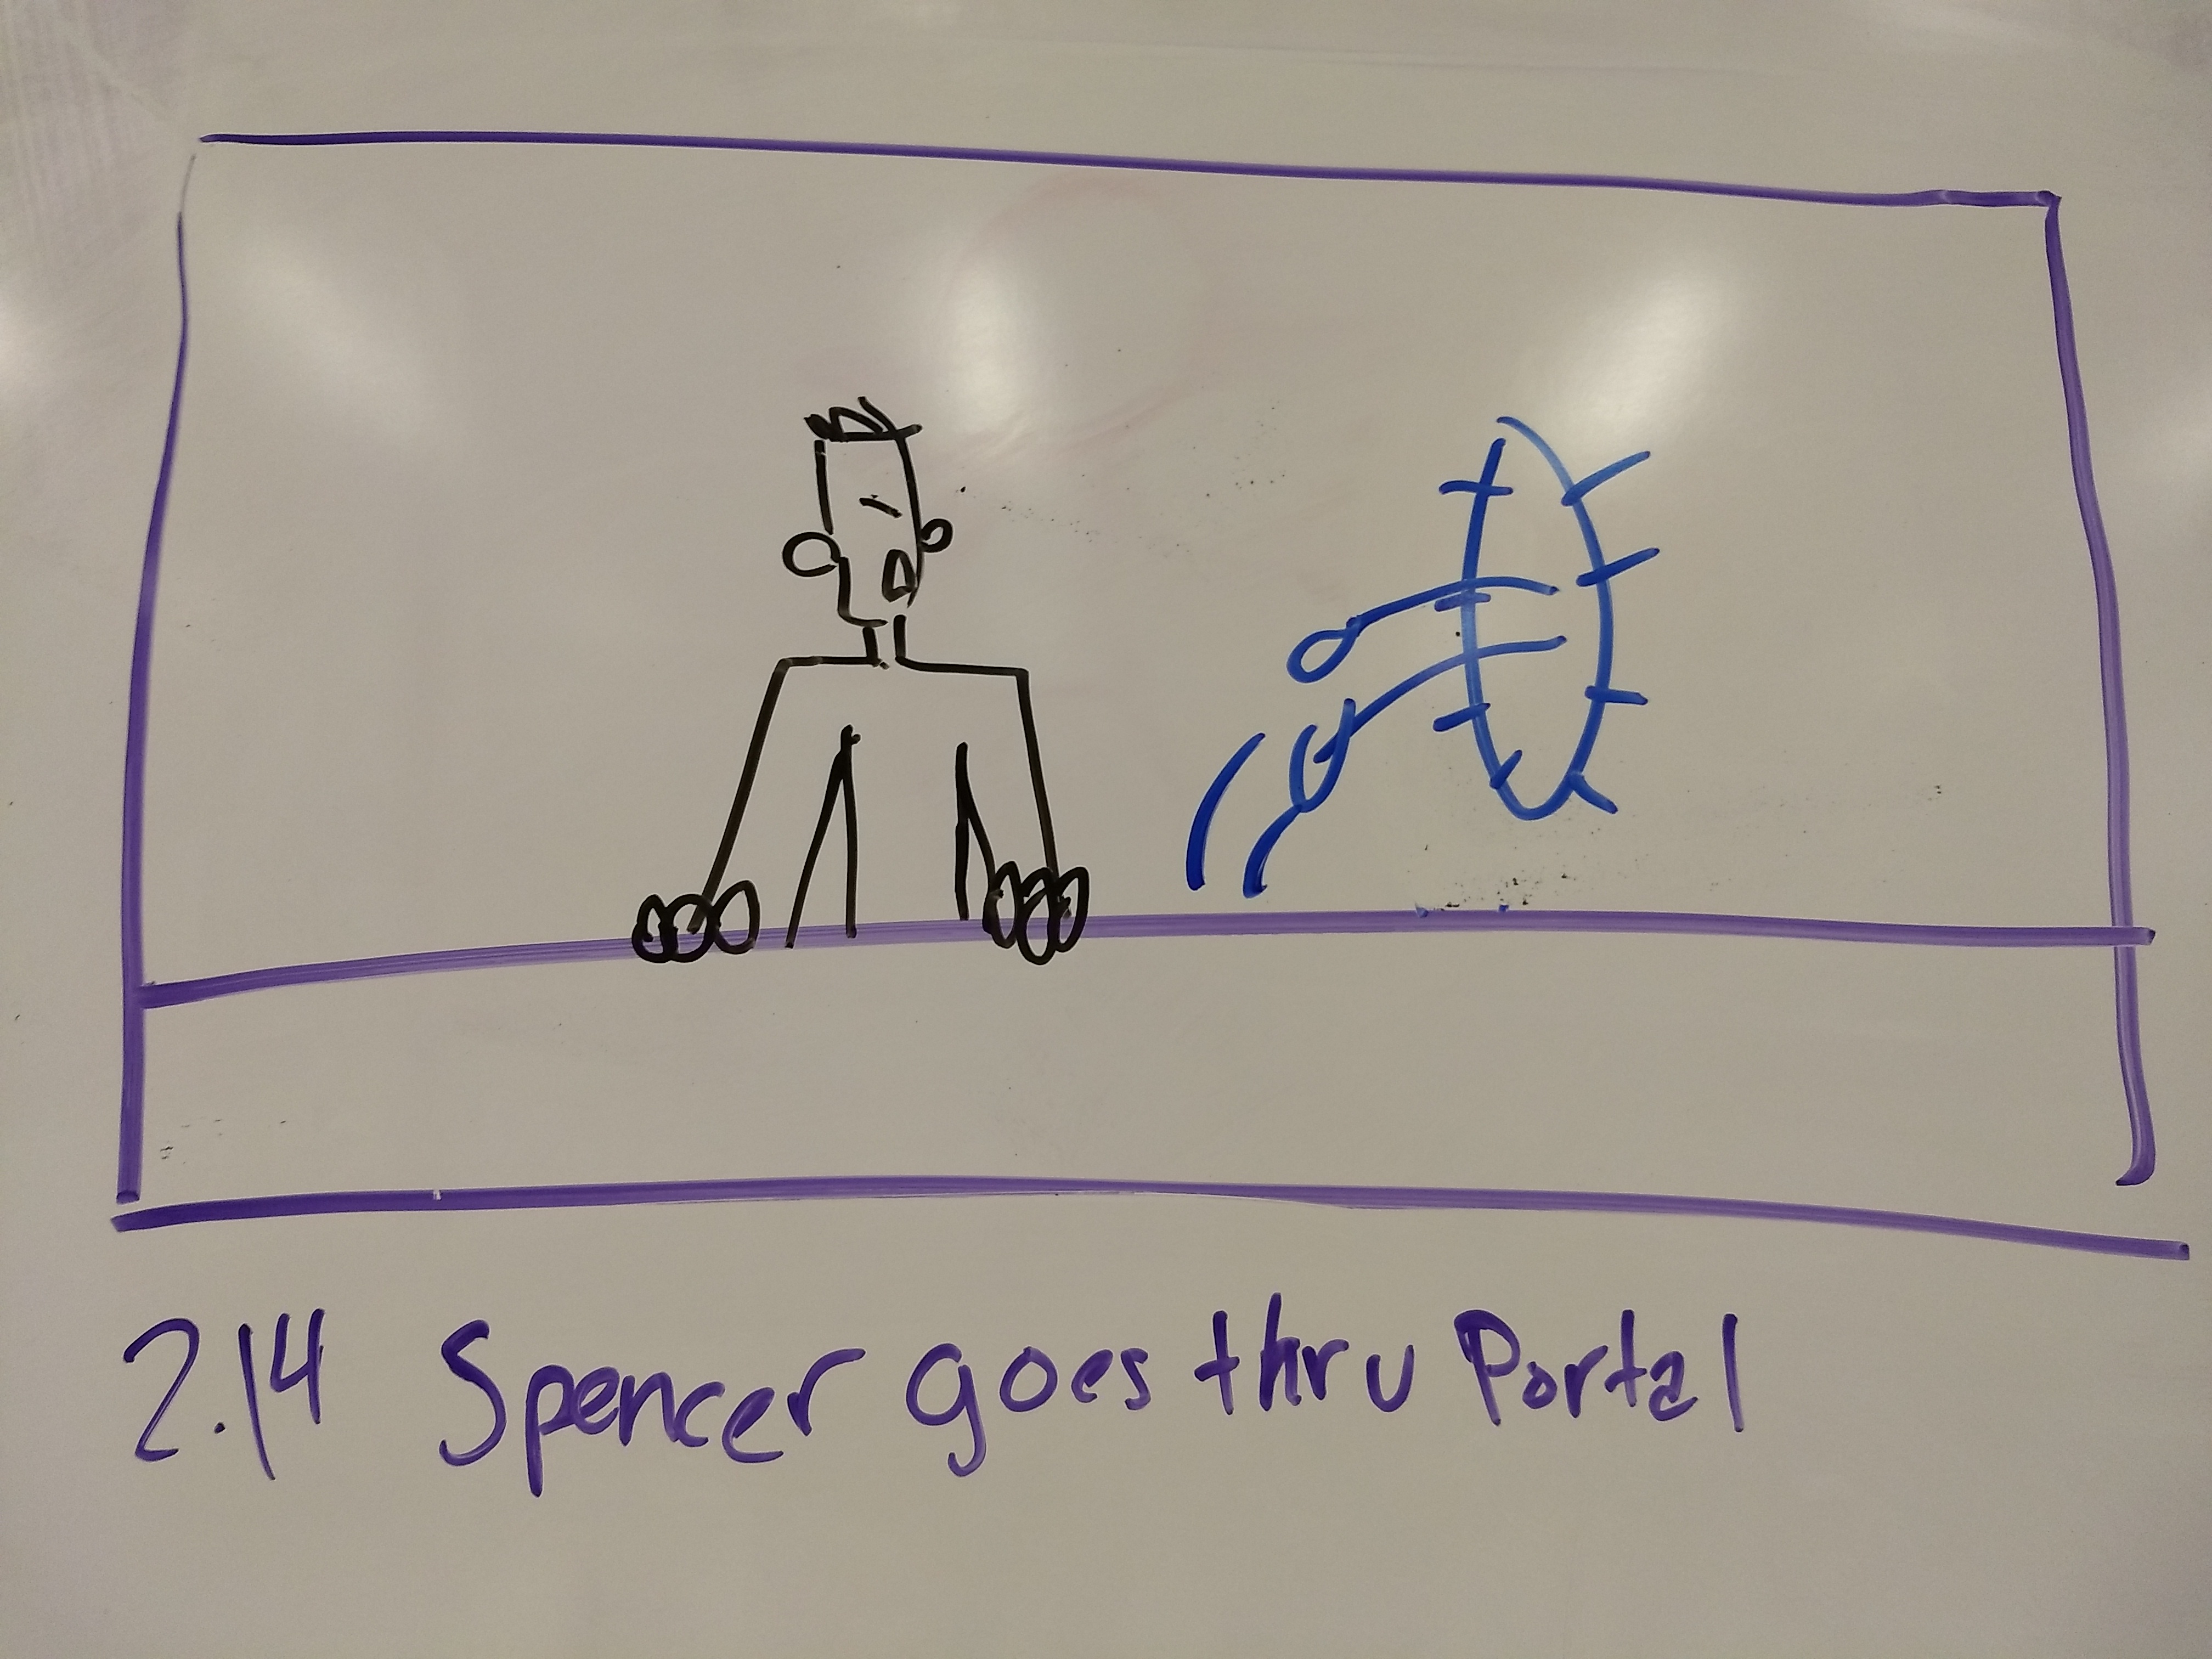 2.14 Spencer goes thru Portal